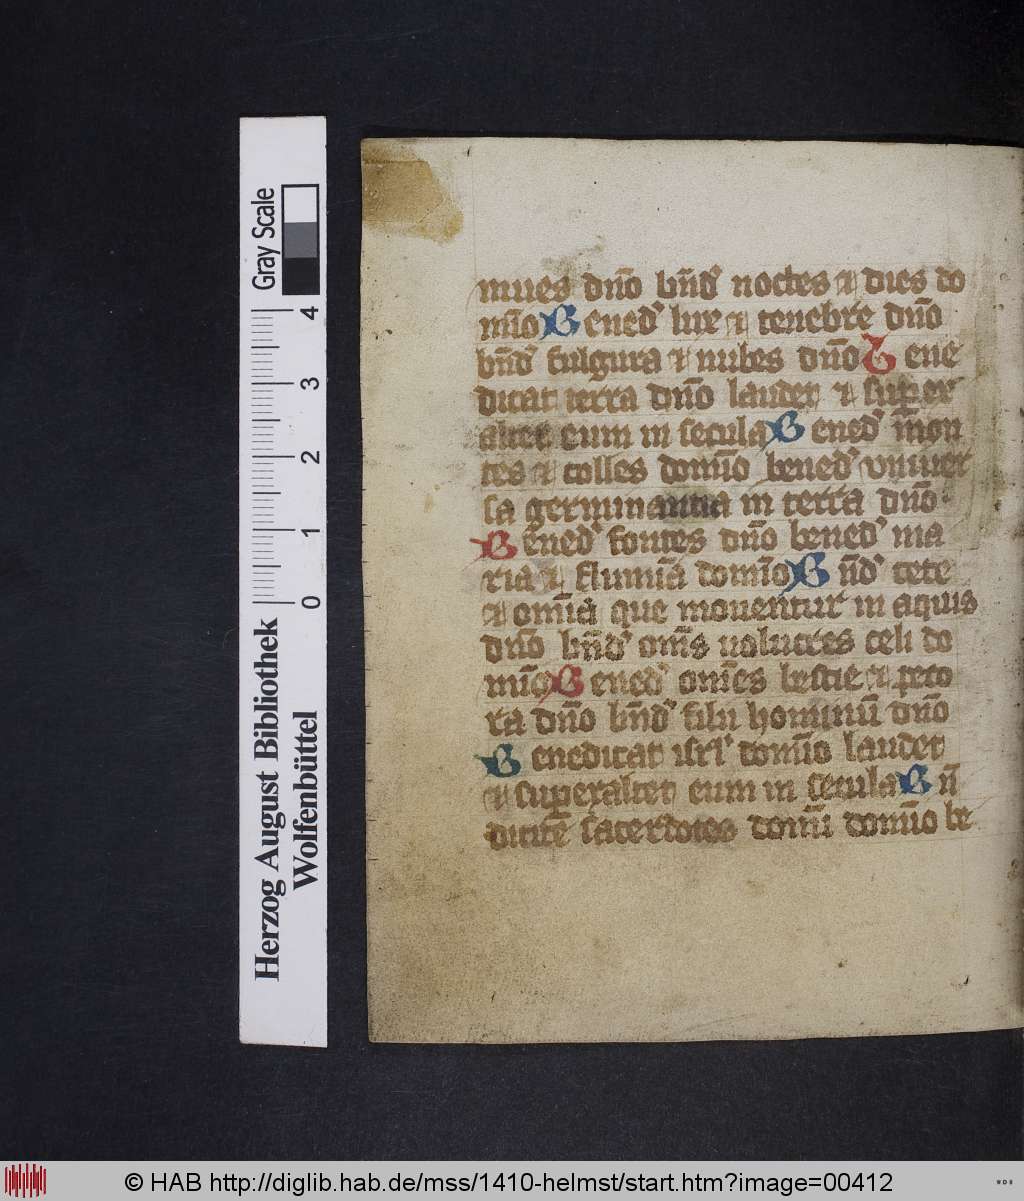 Gray Scale
4
3
2
1
0
Herzog August Bibliothek
Wolfenbüttel
niues dn̄o bn̄dꝰ noctes ⁊ dies do
mīo Benedꝰ lux ⁊ tenebre dn̄o
bn̄dꝰ fulgura ⁊ nubes dn̄o Bene
dicat terra dn̄o laudet ⁊ super
altet eum in secula Benedꝰ mon
tes ⁊ colles domīo benedꝰ vniuer
sa germinantia in terra dn̄o
Benedꝰ fontes dn̄o benedꝰ ma
ria ⁊ flumīa domīo Bn̄dꝰ cete
⁊ omīa que mouentur in aquis
dn̄o bn̄dꝰ om̄s uolucres celi do
mīo Benedꝰ om̄es bestie ⁊ peco
ra dn̄o bn̄dꝰ filii hominū dn̄o
Benedicat isrl̓ domīo laudet
⁊ superaltet eum in secula Bn̄
dicite sacerdotes domī domīo be
© HAB http://diglib.hab.de/mss/1410-helmst/start.htm?image=00412